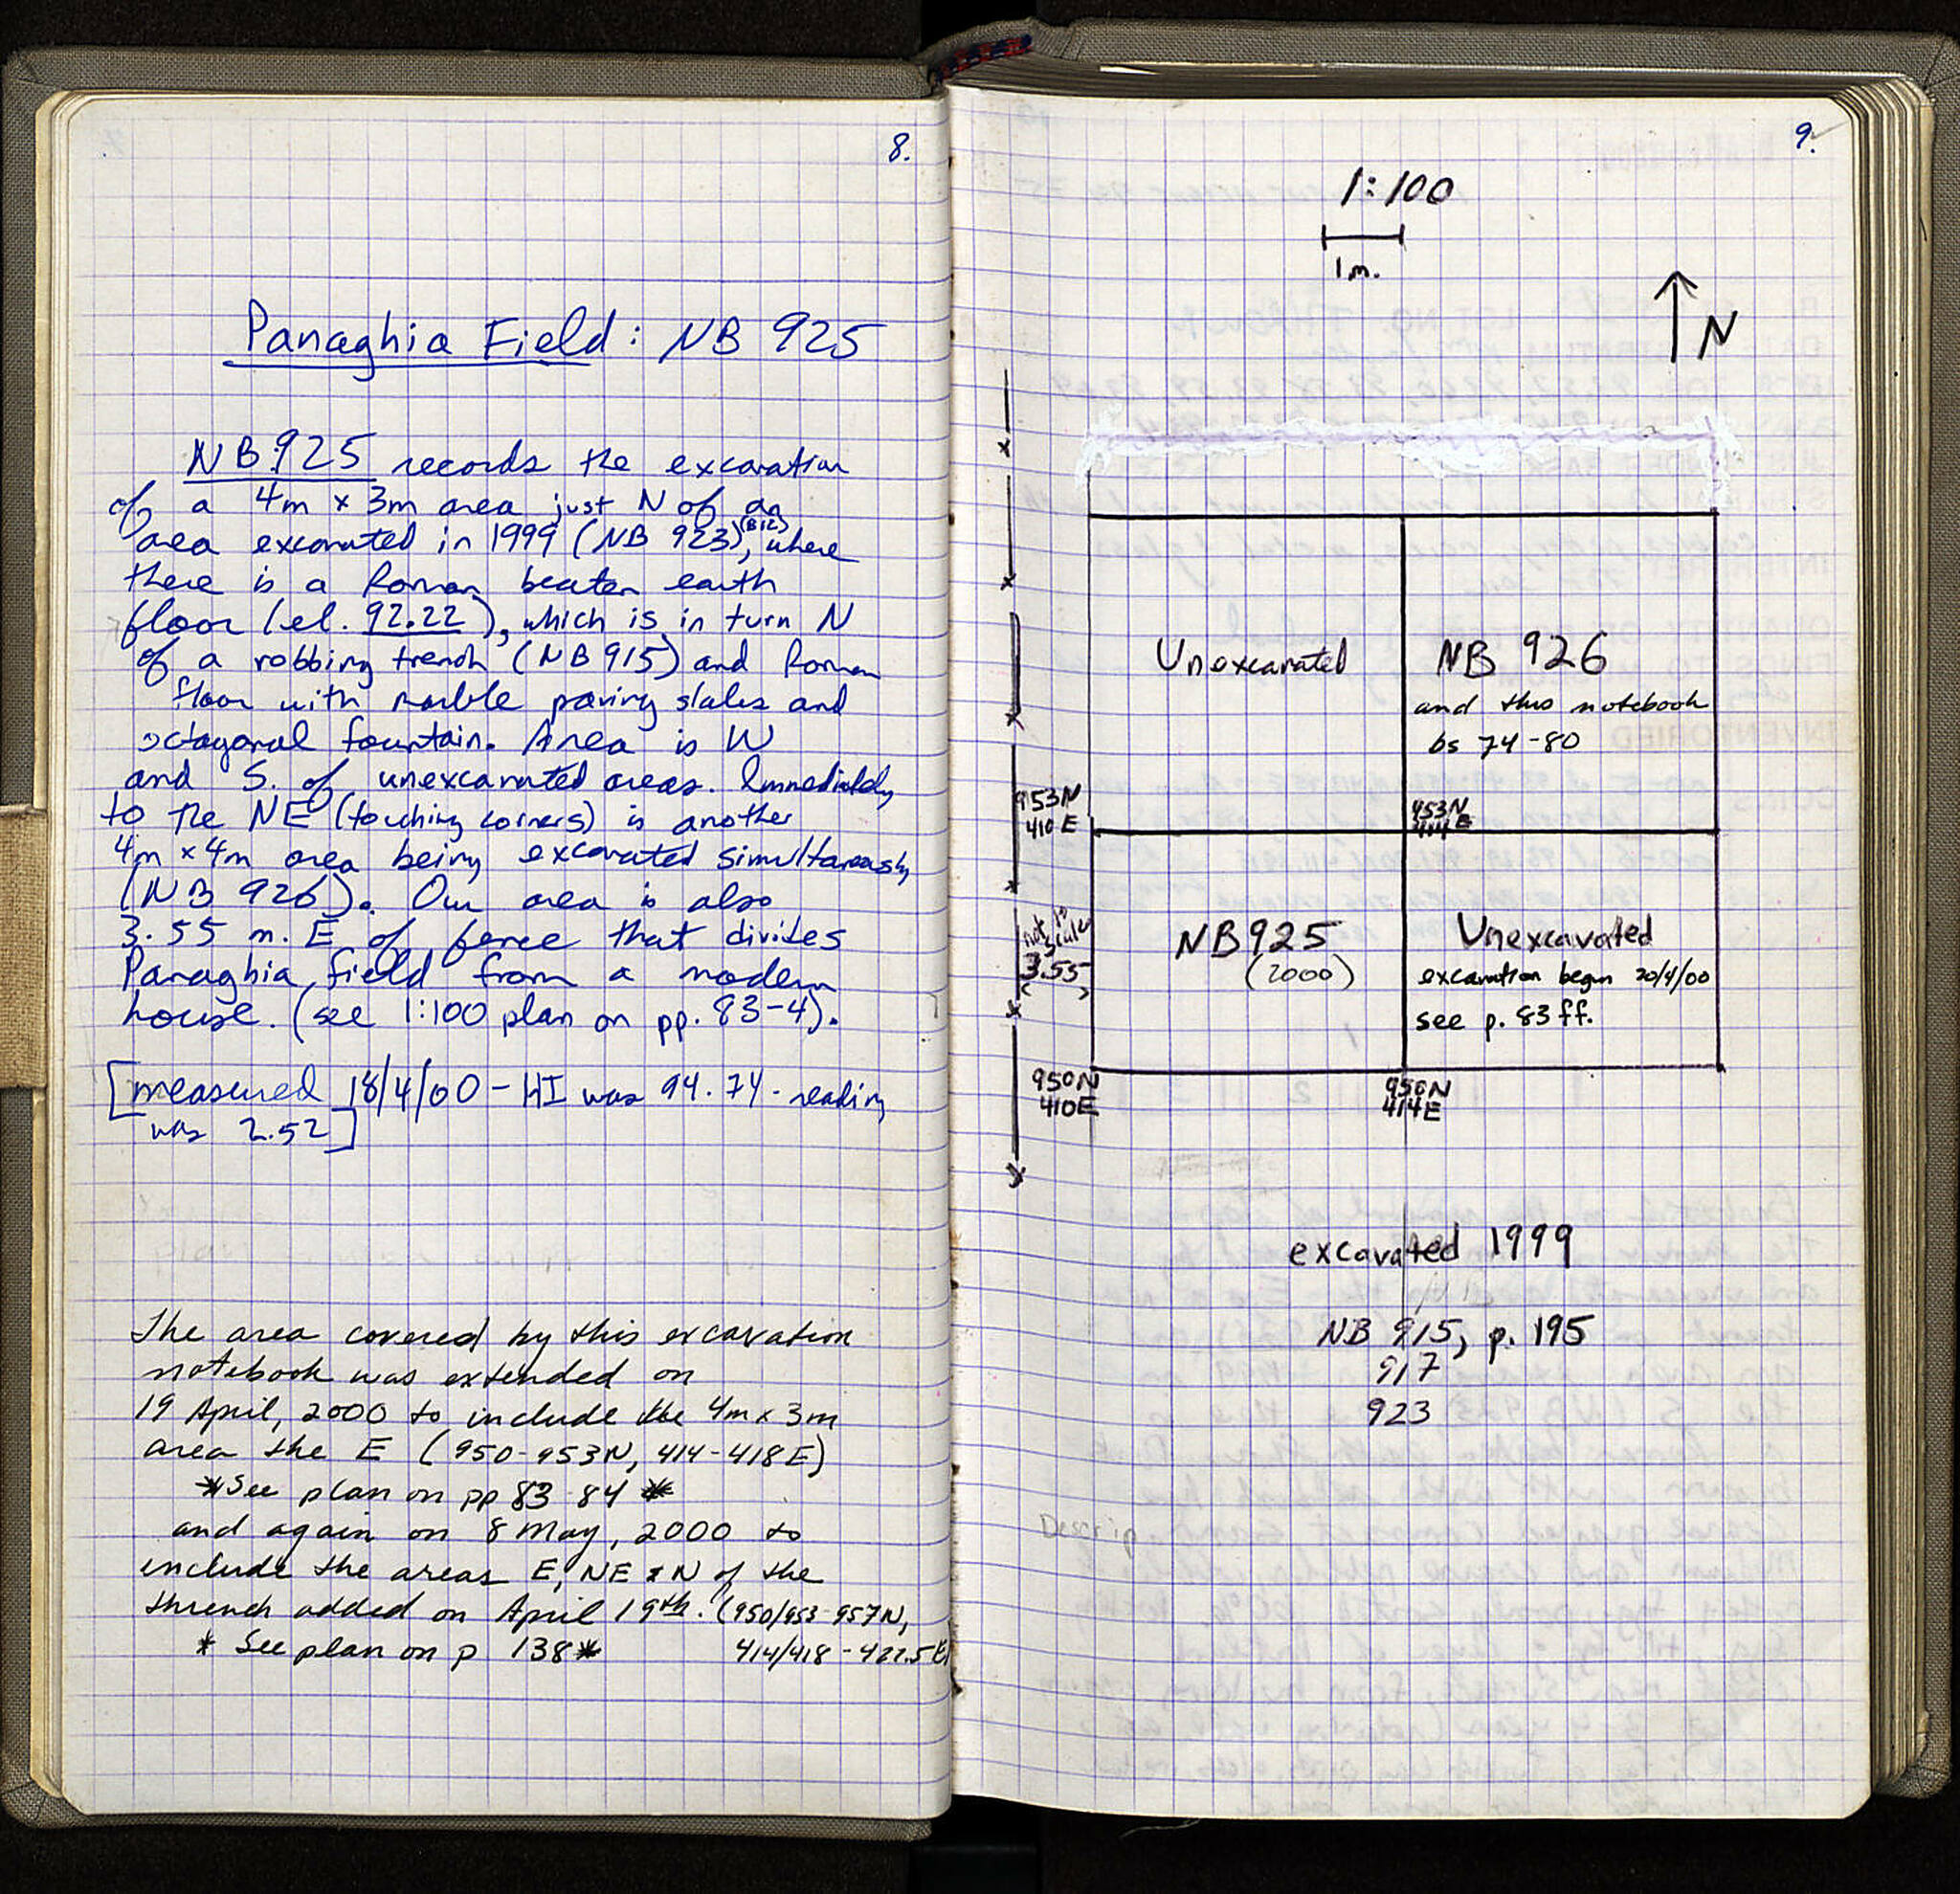 8.
Panaghia Field: NB 925
NB 925 records the excavation
of a 4m x 3m area just N of an
area excavated in 1999 (NB 923)(B12), where
there is a Roman beaten earth
floor (el. 92.22), which is in turn N
of a robbing trench (NB 915) and Roman
floor with marble paving slabs and
octagonal fountain. Area is W
and S. of unexcavated areas. Immediately
to the NE (touching corners) is another
4m x 4m area being excavated simultaneously
(NB 926). Our area is also
3.55 m. E of fence that divides
Panaghia field from a modern
house. (see 1:100 plan on pp. 83-4).
[measured 18/4/00 - HI was 94.74 - reading
was 2.52]
The area covered by this excavation
notebook was extended on
19 April, 2000 to include the 4m x 3m
area the E (950-953N, 414-418E)
*See plan on pp 83-84 *
and again on 8 May, 2000 to
include the areas E, NE & N of the
thrench added on April 19th. (950/953-957N,
* See plan on p 138* 414/418-422.5E)
9.
1:100
1 m.
N
Unexcavated
NB 926
and this notebook
bs 74-80
953N
410 E
953N
414 E
not to
scale
3.55
NB 925
(2000)
Unexcavated
excavation began 20/4/00
see p. 83 ff.
950N
410E
950N
414E
excavated 1999
NB 915, p. 195
917
923
Descrip